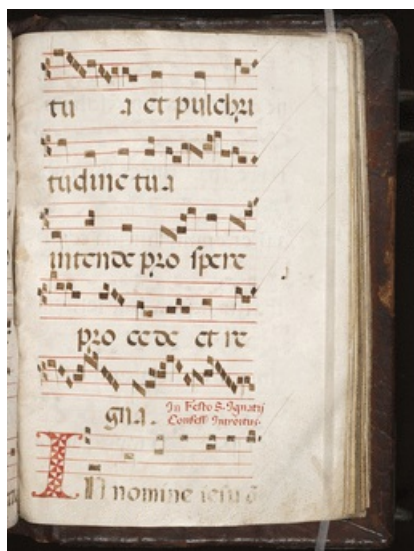 tu a et pulchri
tudine tua
intende pro spere
pro cede et re
gna.
In Festo S. Ignatij
Confess. Introitus.
In nomine iesu o